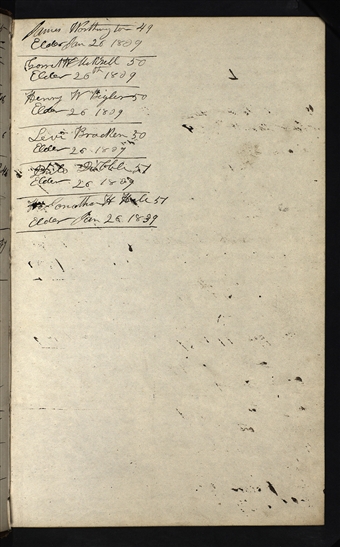 James Worthington 49
Elder Jan 26 1839
50
Elder 26th 1839
Henry W Bigler 50
Elder 26 1839
Levi Bracken 50
Elder 26 1839
Philo Dibble 51
Elder 26 1839
Jonathan H Hale 51
Elder Jan 26 1839